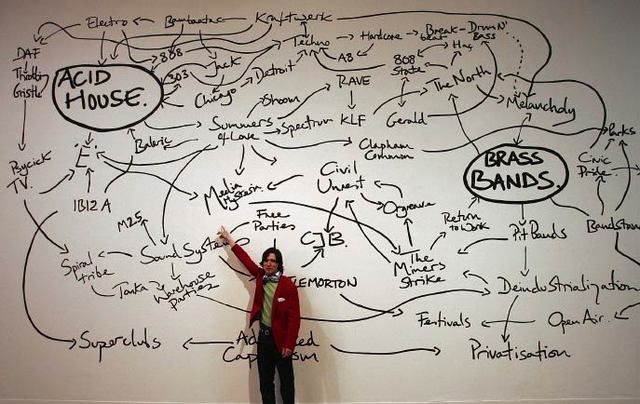 Electro
Bambaataa
Kraftwerk
DAF
808
Techno
Hardcore
Break-
beat
Drum N'
Bass
Throbbing
Gristle
ACID
HOUSE.
303
Jack
A8
808
State
Chicago
Detroit
RAVE
The North
Shoom
Melancholy
Summers
of Love
Spectrum
KLF
Gerald
Balearic
Clapham
Common
Parks
'E'
BRASS
BANDS.
Civic
Pride
TV.
Civil
Unrest
IBIZA
Media
Orgreave
Return
to Work
Bandstand
M25
Free
Parties
CJB.
Pit Bands
Sound Systems
Spiral
tribe
The
Miners
Strike
Tonka
Warehouse
Parties
LEMORTON
Deindustrialization
Festivals
Open Air.
Superclubs
Privatisation